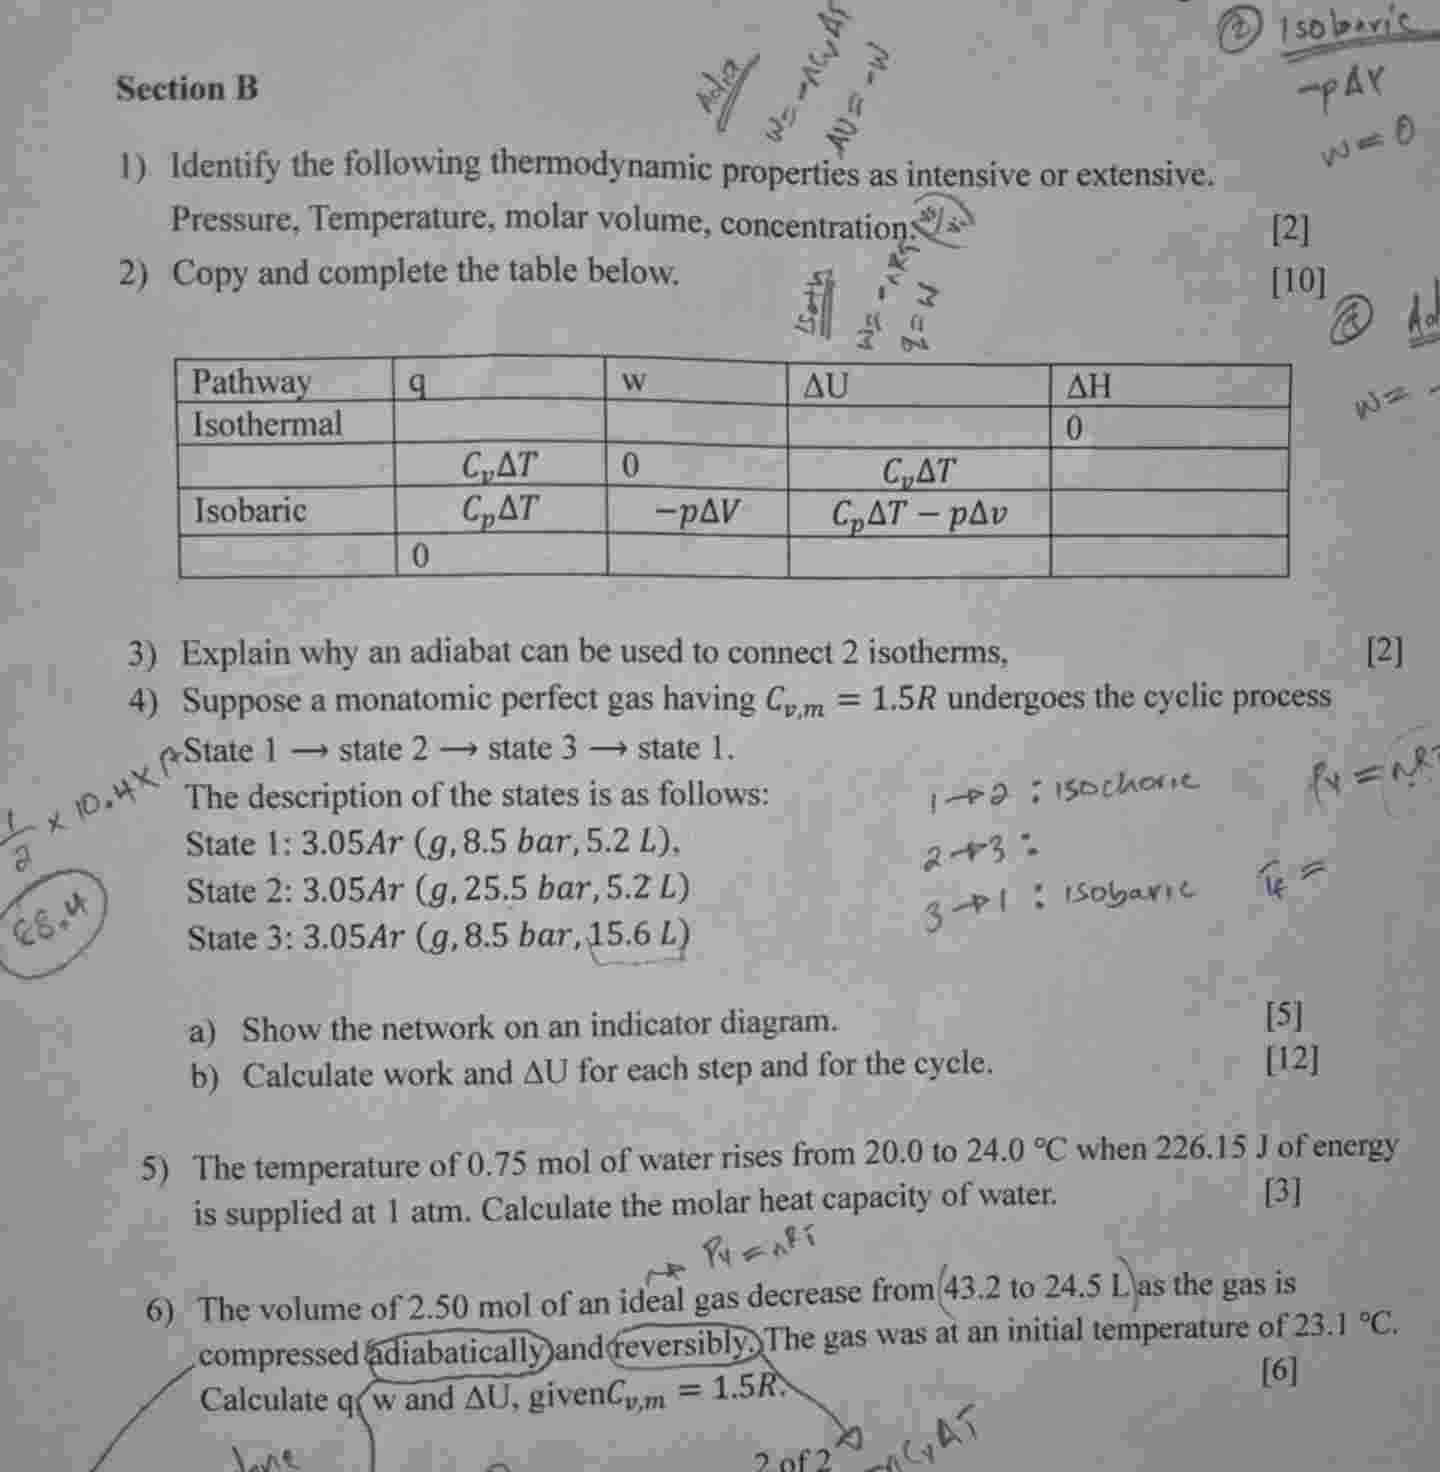 ② Isobaric
-pΔV
w = 0
Adia
w = -nCvΔT
ΔU = -w
Section B
1) Identify the following thermodynamic properties as intensive or extensive.
Pressure, Temperature, molar volume, concentration. [2]
2) Copy and complete the table below. [10]
q = w
w =
Pathway q w ΔU ΔH
Isothermal 0
CᵥΔT 0 CᵥΔT
Isobaric CₚΔT −pΔV CₚΔT − pΔv
0
3) Explain why an adiabat can be used to connect 2 isotherms, [2]
4) Suppose a monatomic perfect gas having Cv,m = 1.5R undergoes the cyclic process
State 1 → state 2 → state 3 → state 1.
The description of the states is as follows:
State 1: 3.05Ar (g, 8.5 bar, 5.2 L),
State 2: 3.05Ar (g, 25.5 bar, 5.2 L)
State 3: 3.05Ar (g, 8.5 bar, 15.6 L)
1/2 × 10.4 ×
88.4
1→2 : isochoric
2→3 :
3→1 : isobaric
a) Show the network on an indicator diagram. [5]
b) Calculate work and ΔU for each step and for the cycle. [12]
5) The temperature of 0.75 mol of water rises from 20.0 to 24.0 °C when 226.15 J of energy
is supplied at 1 atm. Calculate the molar heat capacity of water. [3]
→ PV = nRT
6) The volume of 2.50 mol of an ideal gas decrease from 43.2 to 24.5 L as the gas is
compressed adiabatically and reversibly. The gas was at an initial temperature of 23.1 °C.
Calculate q, w and ΔU, givenCv,m = 1.5R. [6]
2 of 2
-nCvΔT